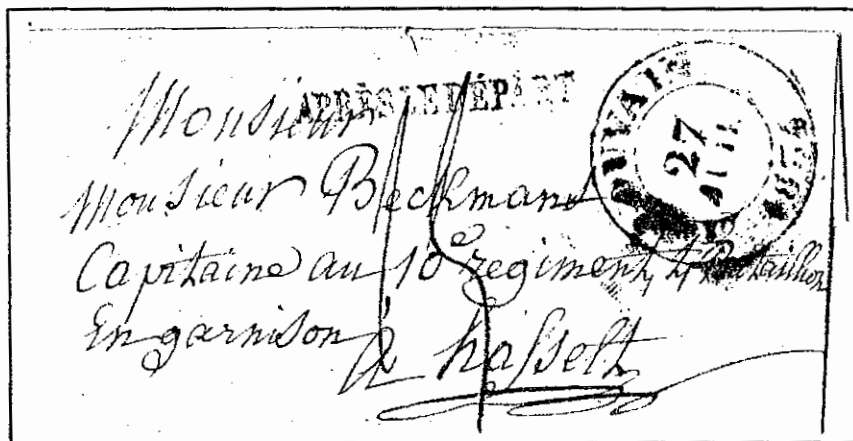 APRÈS LE DÉPART
Monsieur
Monsieur Beckmans
Capitaine au 10e regiment, 4 Bataillon
En garnison
à hasselt
27